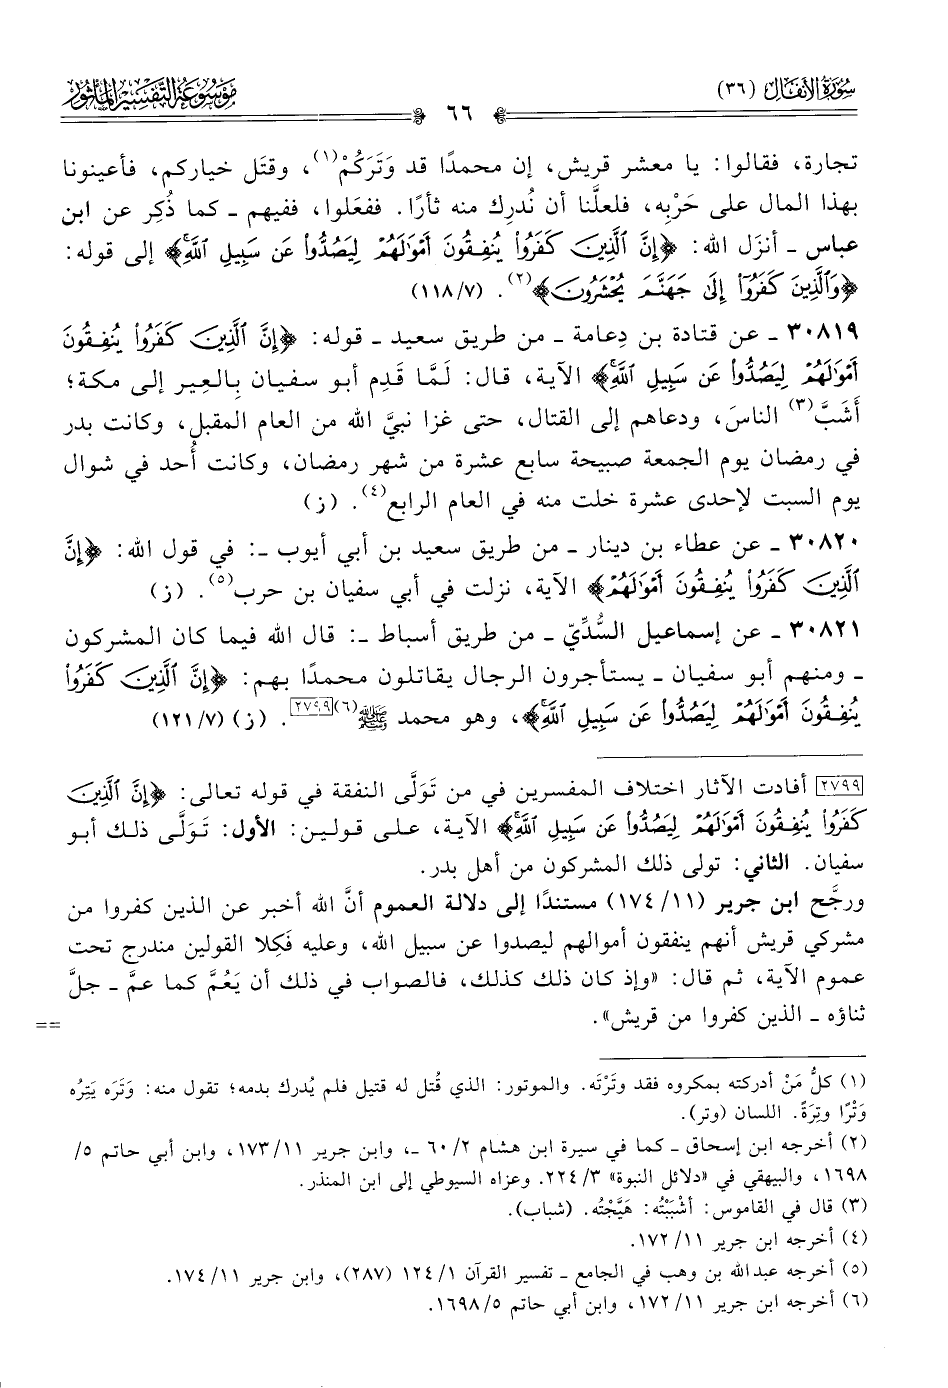 سُورَةُ الأَنفَال (٣٦)
مَوْسُوعَة التَّفْسِير المَأْثُور
٦٦
تجارة، فقالوا: يا معشر قريش، إن محمدًا قد وَتَرَكُمْ(١)، وقتَل خياركم، فأعينونا
بهذا المال على حَرْبِه، فلعلَّنا أن نُدرِك منه ثأرًا. ففعَلوا، ففيهم ـ كما ذُكِر عن ابن
عباس ـ أنزَل الله: ﴿إِنَّ ٱلَّذِينَ كَفَرُواْ يُنفِقُونَ أَمْوَٰلَهُمْ لِيَصُدُّواْ عَن سَبِيلِ ٱللَّهِۚ﴾ إلى قوله:
﴿وَٱلَّذِينَ كَفَرُوٓاْ إِلَىٰ جَهَنَّمَ يُحْشَرُونَ﴾(٢). (٧/ ١١٨)
٣٠٨١٩ ـ عن قتادة بن دِعامة ـ من طريق سعيد ـ قوله: ﴿إِنَّ ٱلَّذِينَ كَفَرُواْ يُنفِقُونَ
أَمْوَٰلَهُمْ لِيَصُدُّواْ عَن سَبِيلِ ٱللَّهِۚ﴾ الآية، قال: لَمَّا قَدِم أبو سفيان بِالعِير إلى مكة؛
أَشَبَّ(٣) الناسَ، ودعاهم إلى القتال، حتى غزا نبيَّ الله من العام المقبل، وكانت بدر
في رمضان يوم الجمعة صبيحة سابع عشرة من شهر رمضان، وكانت أُحد في شوال
يوم السبت لإحدى عشرة خلت منه في العام الرابع(٤). (ز)
٣٠٨٢٠ ـ عن عطاء بن دينار ـ من طريق سعيد بن أبي أيوب ـ: في قول الله: ﴿إِنَّ
ٱلَّذِينَ كَفَرُواْ يُنفِقُونَ أَمْوَٰلَهُمْ﴾ الآية، نزلت في أبي سفيان بن حرب(٥). (ز)
٣٠٨٢١ ـ عن إسماعيل السُّدِّيّ ـ من طريق أسباط ـ: قال الله فيما كان المشركون
ـ ومنهم أبو سفيان ـ يستأجرون الرجال يقاتلون محمدًا بهم: ﴿إِنَّ ٱلَّذِينَ كَفَرُواْ
يُنفِقُونَ أَمْوَٰلَهُمْ لِيَصُدُّواْ عَن سَبِيلِ ٱللَّهِۚ﴾، وهو محمد ﷺ(٦)[٢٧٩٩]. (ز) (٧/ ١٢١)
[٢٧٩٩] أفادت الآثار اختلاف المفسرين في من تَوَلَّى النفقة في قوله تعالى: ﴿إِنَّ ٱلَّذِينَ
كَفَرُواْ يُنفِقُونَ أَمْوَٰلَهُمْ لِيَصُدُّواْ عَن سَبِيلِ ٱللَّهِۚ﴾ الآية، على قولين: الأول: تَوَلَّى ذلك أبو
سفيان. الثاني: تولى ذلك المشركون من أهل بدر.
ورجَّح ابن جرير (١١/ ١٧٤) مستندًا إلى دلالة العموم أنَّ الله أخبر عن الذين كفروا من
مشركي قريش أنهم ينفقون أموالهم ليصدوا عن سبيل الله، وعليه فَكِلا القولين مندرج تحت
عموم الآية، ثم قال: «وإذ كان ذلك كذلك، فالصواب في ذلك أن يَعُمَّ كما عمَّ ـ جلَّ
ثناؤه ـ الذين كفروا من قريش».
==
(١) كلُّ مَنْ أدركته بمكروه فقد وتَرْتَه. والموتور: الذي قُتل له قتيل فلم يُدرك بدمه؛ تقول منه: وَتَرَه يَتِرُه
وَتْرًا وتِرَةً. اللسان (وتر).
(٢) أخرجه ابن إسحاق ـ كما في سيرة ابن هشام ٢/ ٦٠ ـ، وابن جرير ١١/ ١٧٣، وابن أبي حاتم ٥/
١٦٩٨، والبيهقي في «دلائل النبوة» ٣/ ٢٢٤. وعزاه السيوطي إلى ابن المنذر.
(٣) قال في القاموس: أشْبَبْتُه: هَيَّجْتُه. (شباب).
(٤) أخرجه ابن جرير ١١/ ١٧٢.
(٥) أخرجه عبدالله بن وهب في الجامع ـ تفسير القرآن ١/ ١٢٤ (٢٨٧)، وابن جرير ١١/ ١٧٤.
(٦) أخرجه ابن جرير ١١/ ١٧٢، وابن أبي حاتم ٥/ ١٦٩٨.